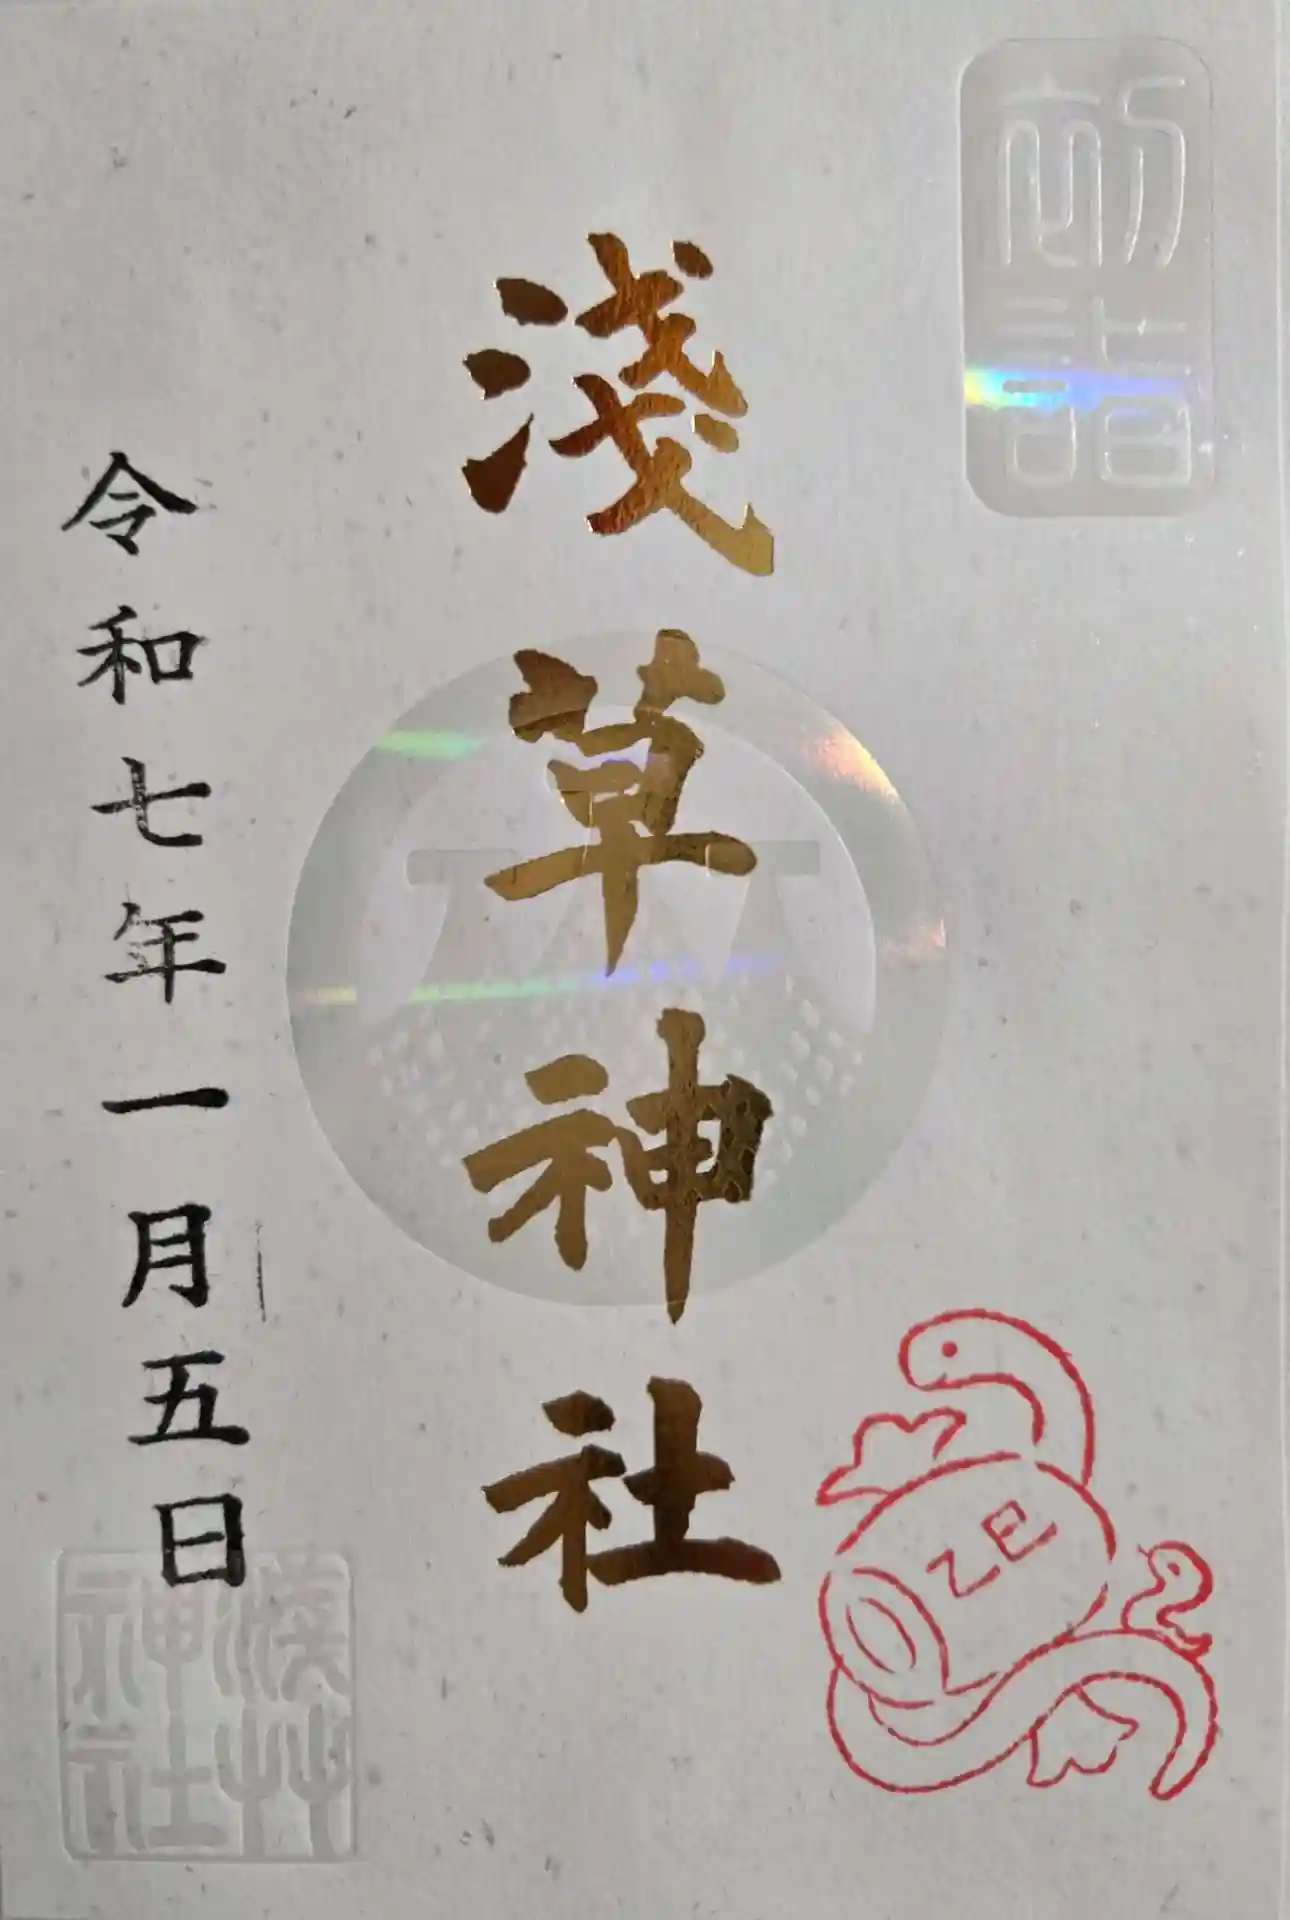 初詣
淺草神社
乙巳
令和七年一月五日
淺草神社